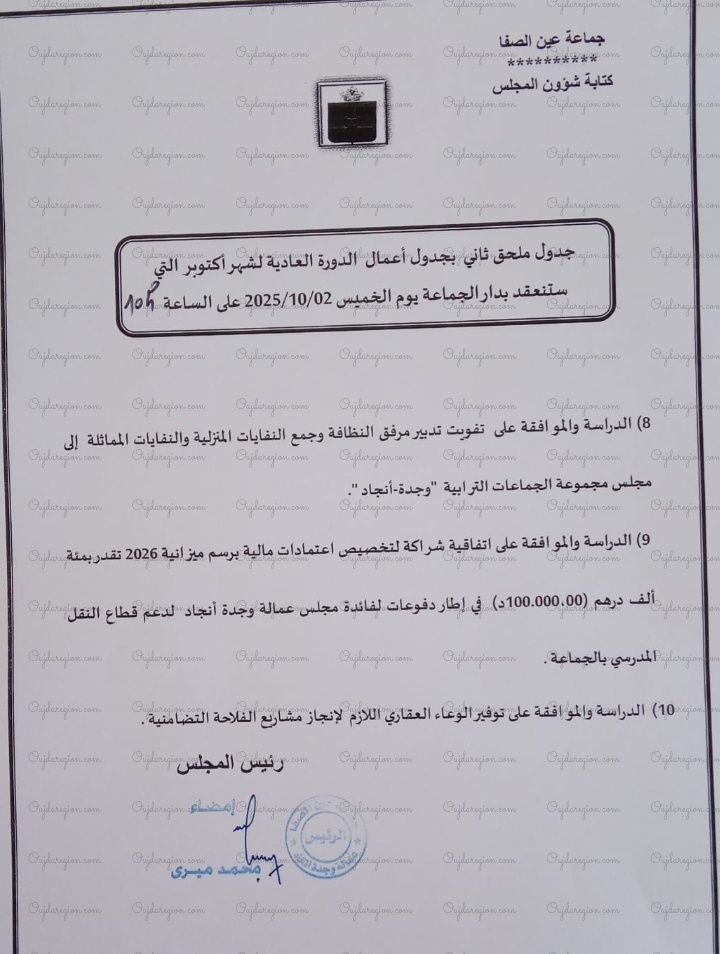 جماعة عين الصفا
**********
كتابة شؤون المجلس
جدول ملحق ثاني بجدول أعمال الدورة العادية لشهر أكتوبر التي
ستنعقد بدار الجماعة يوم الخميس 2025/10/02 على الساعة 10h
8) الدراسة والموافقة على تفويت تدبير مرفق النظافة وجمع النفايات المنزلية والنفايات المماثلة إلى
مجلس مجموعة الجماعات الترابية "وجدة-أنجاد".
9) الدراسة والموافقة على اتفاقية شراكة لتخصيص اعتمادات مالية برسم ميزانية 2026 تقدر بمئة
ألف درهم (100.000.00د) في إطار دفوعات لفائدة مجلس عمالة وجدة أنجاد لدعم قطاع النقل
المدرسي بالجماعة .
10) الدراسة والموافقة على توفير الوعاء العقاري اللازم لإنجاز مشاريع الفلاحة التضامنية .
رئيس المجلس
إمضاء
الرئيس
محمد ميري
Oujdaregion.com